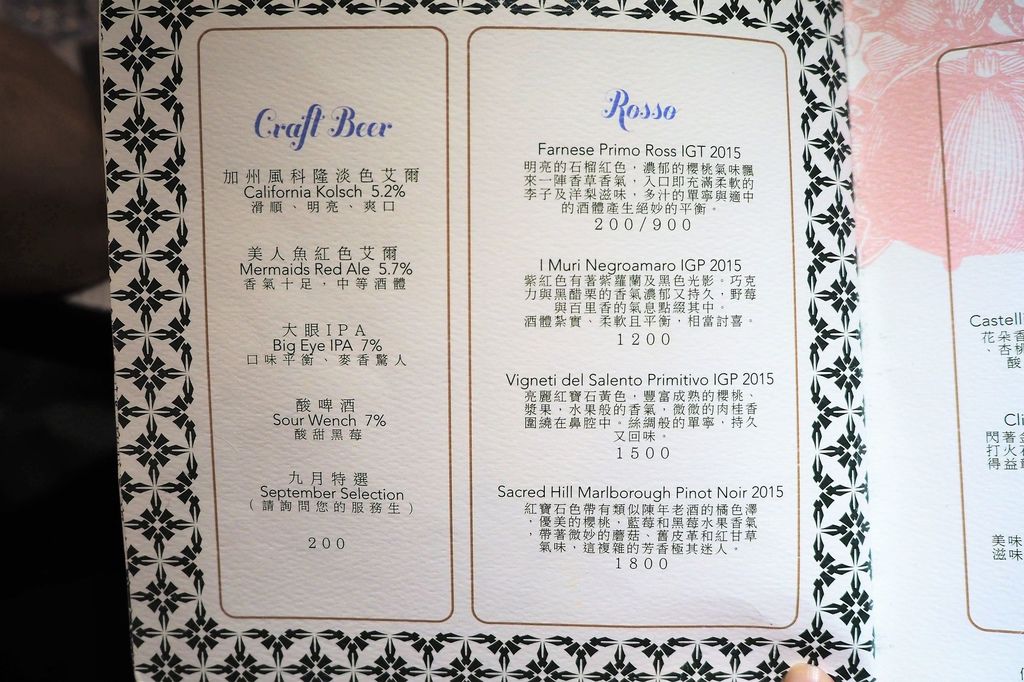 Craft Beer
加州風科隆淡色艾爾
California Kolsch 5.2%
滑順、明亮、爽口
美人魚紅色艾爾
Mermaids Red Ale 5.7%
香氣十足，中等酒體
大眼IPA
Big Eye IPA 7%
口味平衡、麥香驚人
酸啤酒
Sour Wench 7%
酸甜黑莓
九月特選
September Selection
(請詢問您的服務生)
200
Rosso
Farnese Primo Ross IGT 2015
明亮的石榴紅色，濃郁的櫻桃氣味飄
來一陣香草香氣，入口即充滿柔軟的
李子及洋梨滋味，多汁的單寧與適中
的酒體產生絕妙的平衡。
200/900
I Muri Negroamaro IGP 2015
紫紅色有著紫羅蘭及黑色光影。巧克
力與黑醋栗的香氣濃郁又持久，野莓
與百里香的氣息點綴其中。
酒體紮實、柔軟且平衡，相當討喜。
1200
Vigneti del Salento Primitivo IGP 2015
亮麗紅寶石黃色，豐富成熟的櫻桃、
漿果，水果般的香氣，微微的肉桂香
圍繞在鼻腔中。絲綢般的單寧，持久
又回味。
1500
Sacred Hill Marlborough Pinot Noir 2015
紅寶石色帶有類似陳年老酒的橘色澤
，優美的櫻桃，藍莓和黑莓水果香氣
，帶著微妙的蘑菇、舊皮革和紅甘草
氣味，這複雜的芳香極其迷人。
1800
Castell
花朵香
、杏桃
酸
Cli
閃著金
打火石
得益
美味
滋味